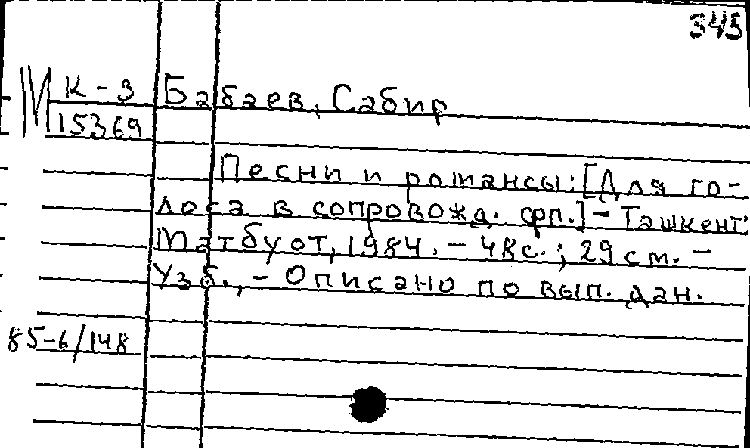 345
М К-3 Бабаев, Сабир
15369
Песни и романсы: [Для го-
лоса в сопровожд. фп.] - Ташкент:
Матбуот, 1984. - 48 с.; 29 см. -
Узб., - Описано по вып. дан.
85-6/148